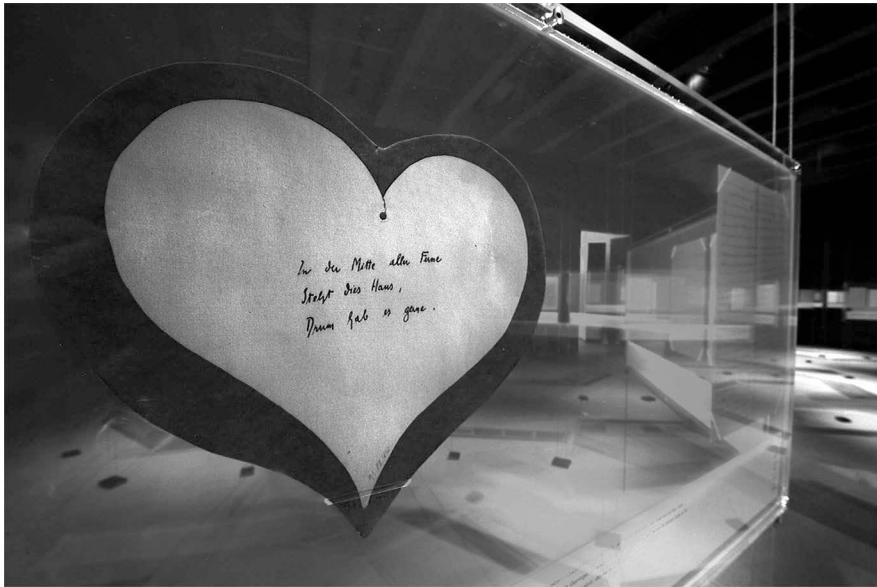 In der Mitte aller Ferne
Steht dies Haus,
Drum hab es gerne.